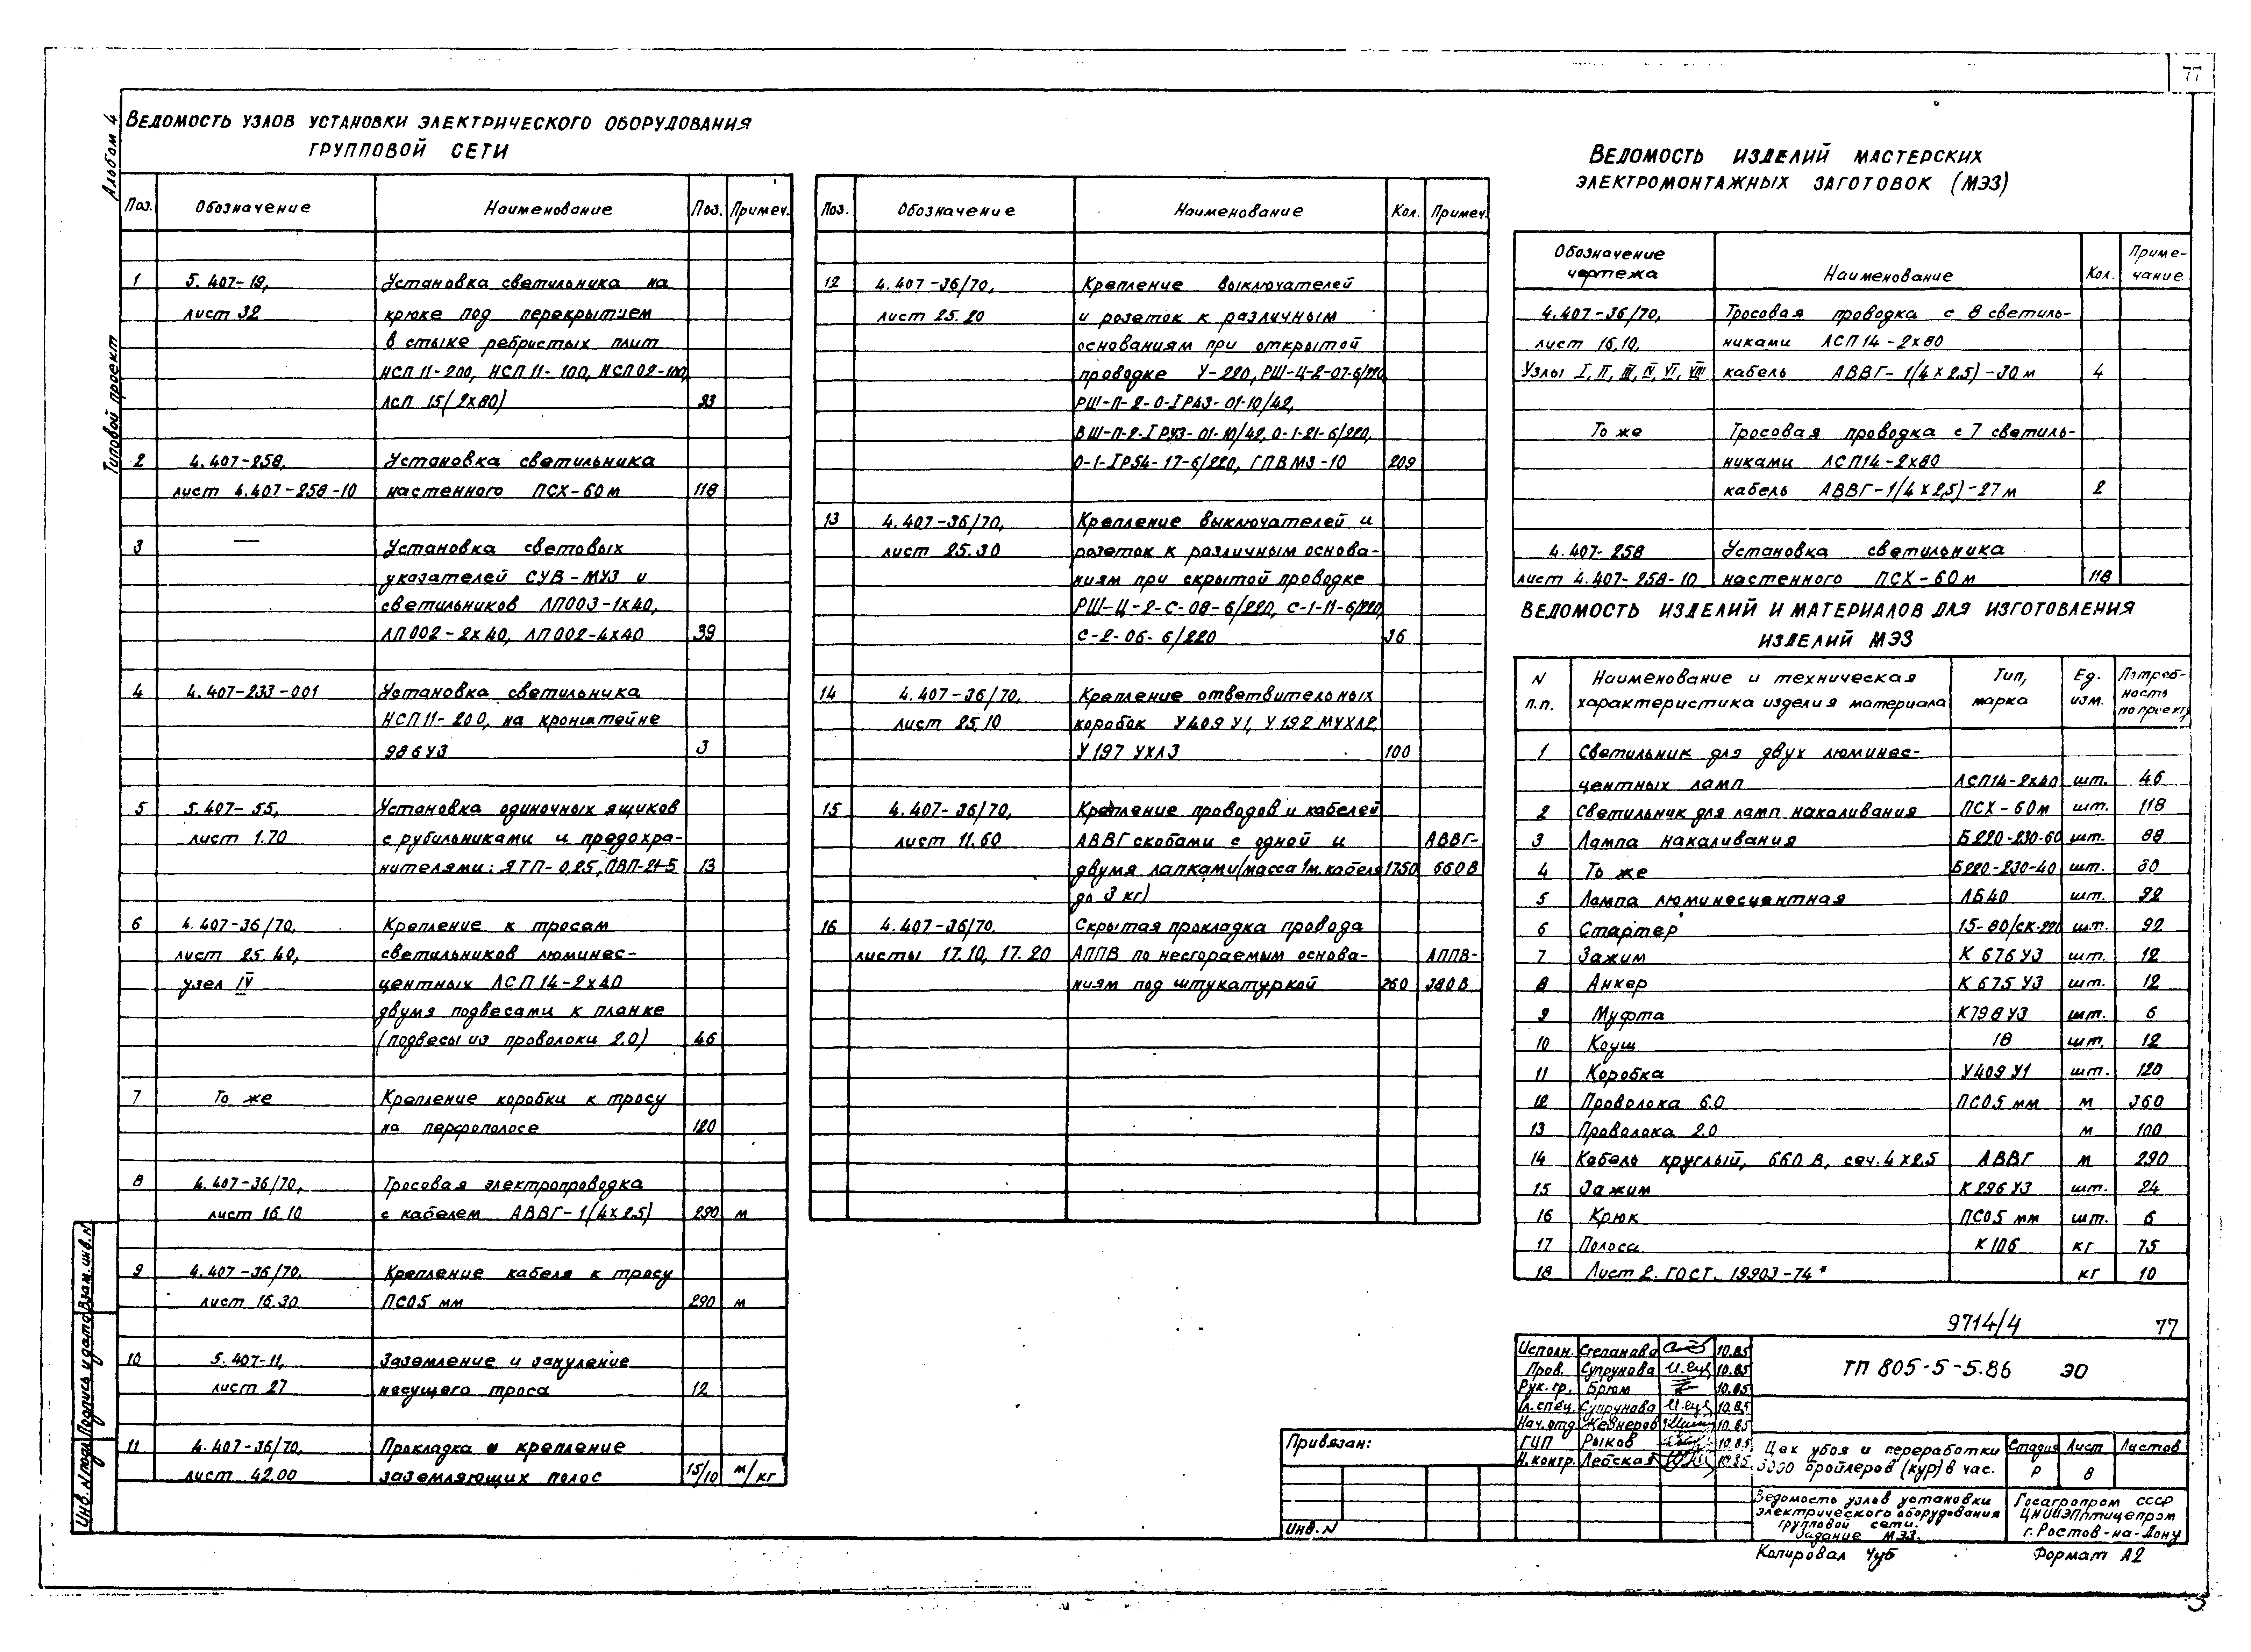 77
Альбом 4
Типовой проект
ВЕДОМОСТЬ УЗЛОВ УСТАНОВКИ ЭЛЕКТРИЧЕСКОГО ОБОРУДОВАНИЯ
ГРУППОВОЙ СЕТИ
Поз. Обозначение Наименование Поз. Примеч.
1 5.407-19, Установка светильника на
лист 32 крюке под перекрытием
в стыке ребристых плит
НСП 11-200, НСП 11-100, НСП 02-100,
ЛСП 15(2х80) 93
2 4.407-258, Установка светильника
лист 4.407-258-10 настенного ПСХ-60м 118
3 — Установка световых
указателей СУВ-МУЗ и
светильников ЛПО03-1х40,
ЛПО02-2х40, ЛПО02-4х40 39
4 4.407-233-001 Установка светильника
НСП11-200, на кронштейне
986У3 3
5 5.407-55, Установка одиночных ящиков
лист 1.70 с рубильниками и предохра-
нителями: ЯТП-0,25, ПВП-21-5 13
6 4.407-36/70, Крепление к тросам
лист 25.40, светильников люминес-
узел IV центных ЛСП 14-2х40
двумя подвесами к планке
(подвесы из проволоки 2.0) 46
7 То же Крепление коробки к тросу
на перфополосе 120
8 4.407-36/70, Тросовая электропроводка
лист 16.10 с кабелем АВВГ-1(4х2.5) 290 м
9 4.407-36/70, Крепление кабеля к тросу
лист 16.30 ПСО5 мм 290 м
10 5.407-11, Заземление и зануление
лист 27 несущего троса 12
11 4.407-36/70, Прокладка и крепление
лист 42.00 заземляющих полос 15/10 м/кг
Поз. Обозначение Наименование Кол. Примеч.
12 4.407-36/70, Крепление выключателей
лист 25.20 и розеток к различным
основаниям при открытой
проводке У-220, РШ-Ц-2-07-6/220
РШ-П-2-0-IP43-01-10/42,
ВШ-П-2-IРУ3-01-10/42, 0-1-21-6/220,
0-1-IP54-17-6/220, ГПВМ3-10 209
13 4.407-36/70, Крепление выключателей и
лист 25.30 розеток к различным основа-
ниям при скрытой проводке
РШ-Ц-2-С-08-6/220, С-1-11-6/220,
С-2-06-6/220 36
14 4.407-36/70, Крепление ответвительных
лист 25,10 коробок У409 У1, У192 МУХЛ2,
У197 УХЛ3 100
15 4.407-36/70, Крепление проводов и кабелей
лист 11.60 АВВГ скобами с одной и АВВГ-
двумя лапками(масса 1м.кабеля 1750 660В
до 3 кг)
16 4.407-36/70, Скрытая прокладка провода
листы 17.10, 17.20 АППВ по несгораемым основа- АППВ-
ниям под штукатуркой 260 380В
ВЕДОМОСТЬ ИЗДЕЛИЙ МАСТЕРСКИХ
ЭЛЕКТРОМОНТАЖНЫХ ЗАГОТОВОК (МЭЗ)
Обозначение чертежа Наименование Кол. Приме-чание
4.407-36/70, Тросовая проводка с 8 светиль-
лист 16.10, никами ЛСП 14-2х80
Узлы I, II, III, IV, VI, VIII кабель АВВГ-1(4х2,5)-30м 4
То же Тросовая проводка с 7 светиль-
никами ЛСП14-2х80
кабель АВВГ-1(4х2,5)-27м 2
4.407-258 Установка светильника
лист 4.407-258-10 настенного ПСХ-60м 118
ВЕДОМОСТЬ ИЗДЕЛИЙ И МАТЕРИАЛОВ ДЛЯ ИЗГОТОВЛЕНИЯ
ИЗДЕЛИЙ МЭЗ
N Наименование и техническая Тип, Ед. Потреб-
п.п. характеристика изделия материала марка изм. ность
по проекту
1 Светильник для двух люминес-
центных ламп ЛСП14-2х40 шт. 46
2 Светильник для ламп накаливания ПСХ-60м шт. 118
3 Лампа накаливания Б220-230-60 шт. 88
4 То же Б220-230-40 шт. 80
5 Лампа люминесцентная ЛБ40 шт. 92
6 Стартер 15-80/СК-220 шт. 92
7 Зажим К 676 У3 шт. 12
8 Анкер К 675 У3 шт. 12
9 Муфта К798 У3 шт. 6
10 Коуш 18 шт. 12
11 Коробка У409 У1 шт. 120
12 Проволока 6.0 ПСО5 мм м 360
13 Проволока 2.0 м 100
14 Кабель круглый, 660 В, сеч. 4х2,5 АВВГ м 290
15 Зажим К296 У3 шт. 24
16 Крюк ПСО5 мм шт. 6
17 Полоса К106 кг 75
18 Лист 2. ГОСТ. 19903-74* кг 10
9714/4 77
Исполн. Степанова 10.85
Пров. Супрунова 10.85
Рук. гр. Брюм 10.85
Гл. спец. Супрунова 10.85
Нач. отд. Жевнеров 10.85
ГИП Рыков 10.85
Н. контр. Лебская 10.85
ТП 805-5-5.86 ЭО
Цех убоя и переработки
3000 бройлеров (кур) в час.
Стадия Лист Листов
Р 8
Ведомость узлов установки
электрического оборудования
групповой сети.
Задание МЭЗ.
Госагропром СССР
ЦНИИЭПптицепром
г. Ростов-на-Дону
Привязан:
Инв. N
Копировал Чуб Формат А2
Инв. N подл. Подпись и дата Взам. инв. N